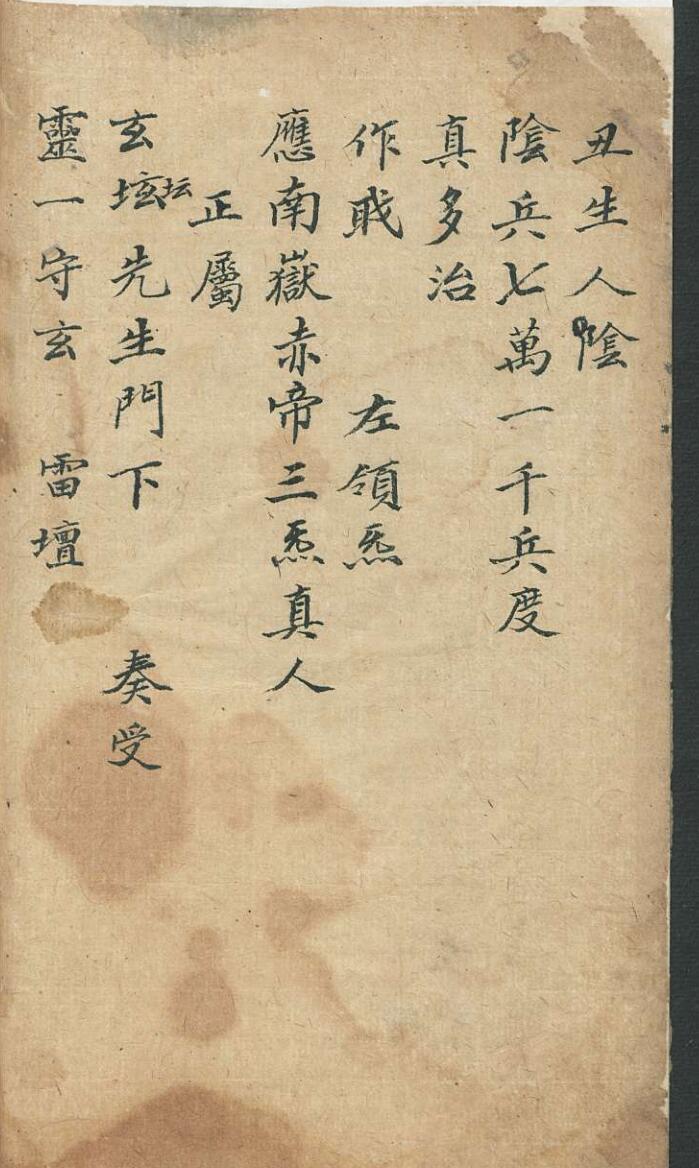 丑生人陰
陰兵七萬一千兵度
真多治
作戝 左領炁
應南嶽赤帝三炁真人
正屬
玄垓坛先生門下 奏受
靈一守玄 雷壇